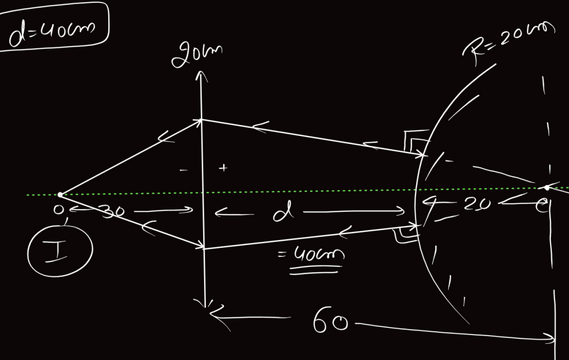 d=40cm
20cm
R=20cm
- +
O 30 d 20 C
I
=40cm
60